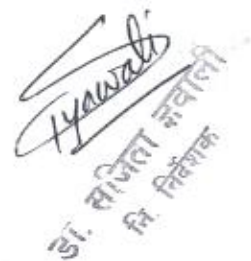 Gyawali
डा. सजिता ज्ञवाली
नि. निर्देशक